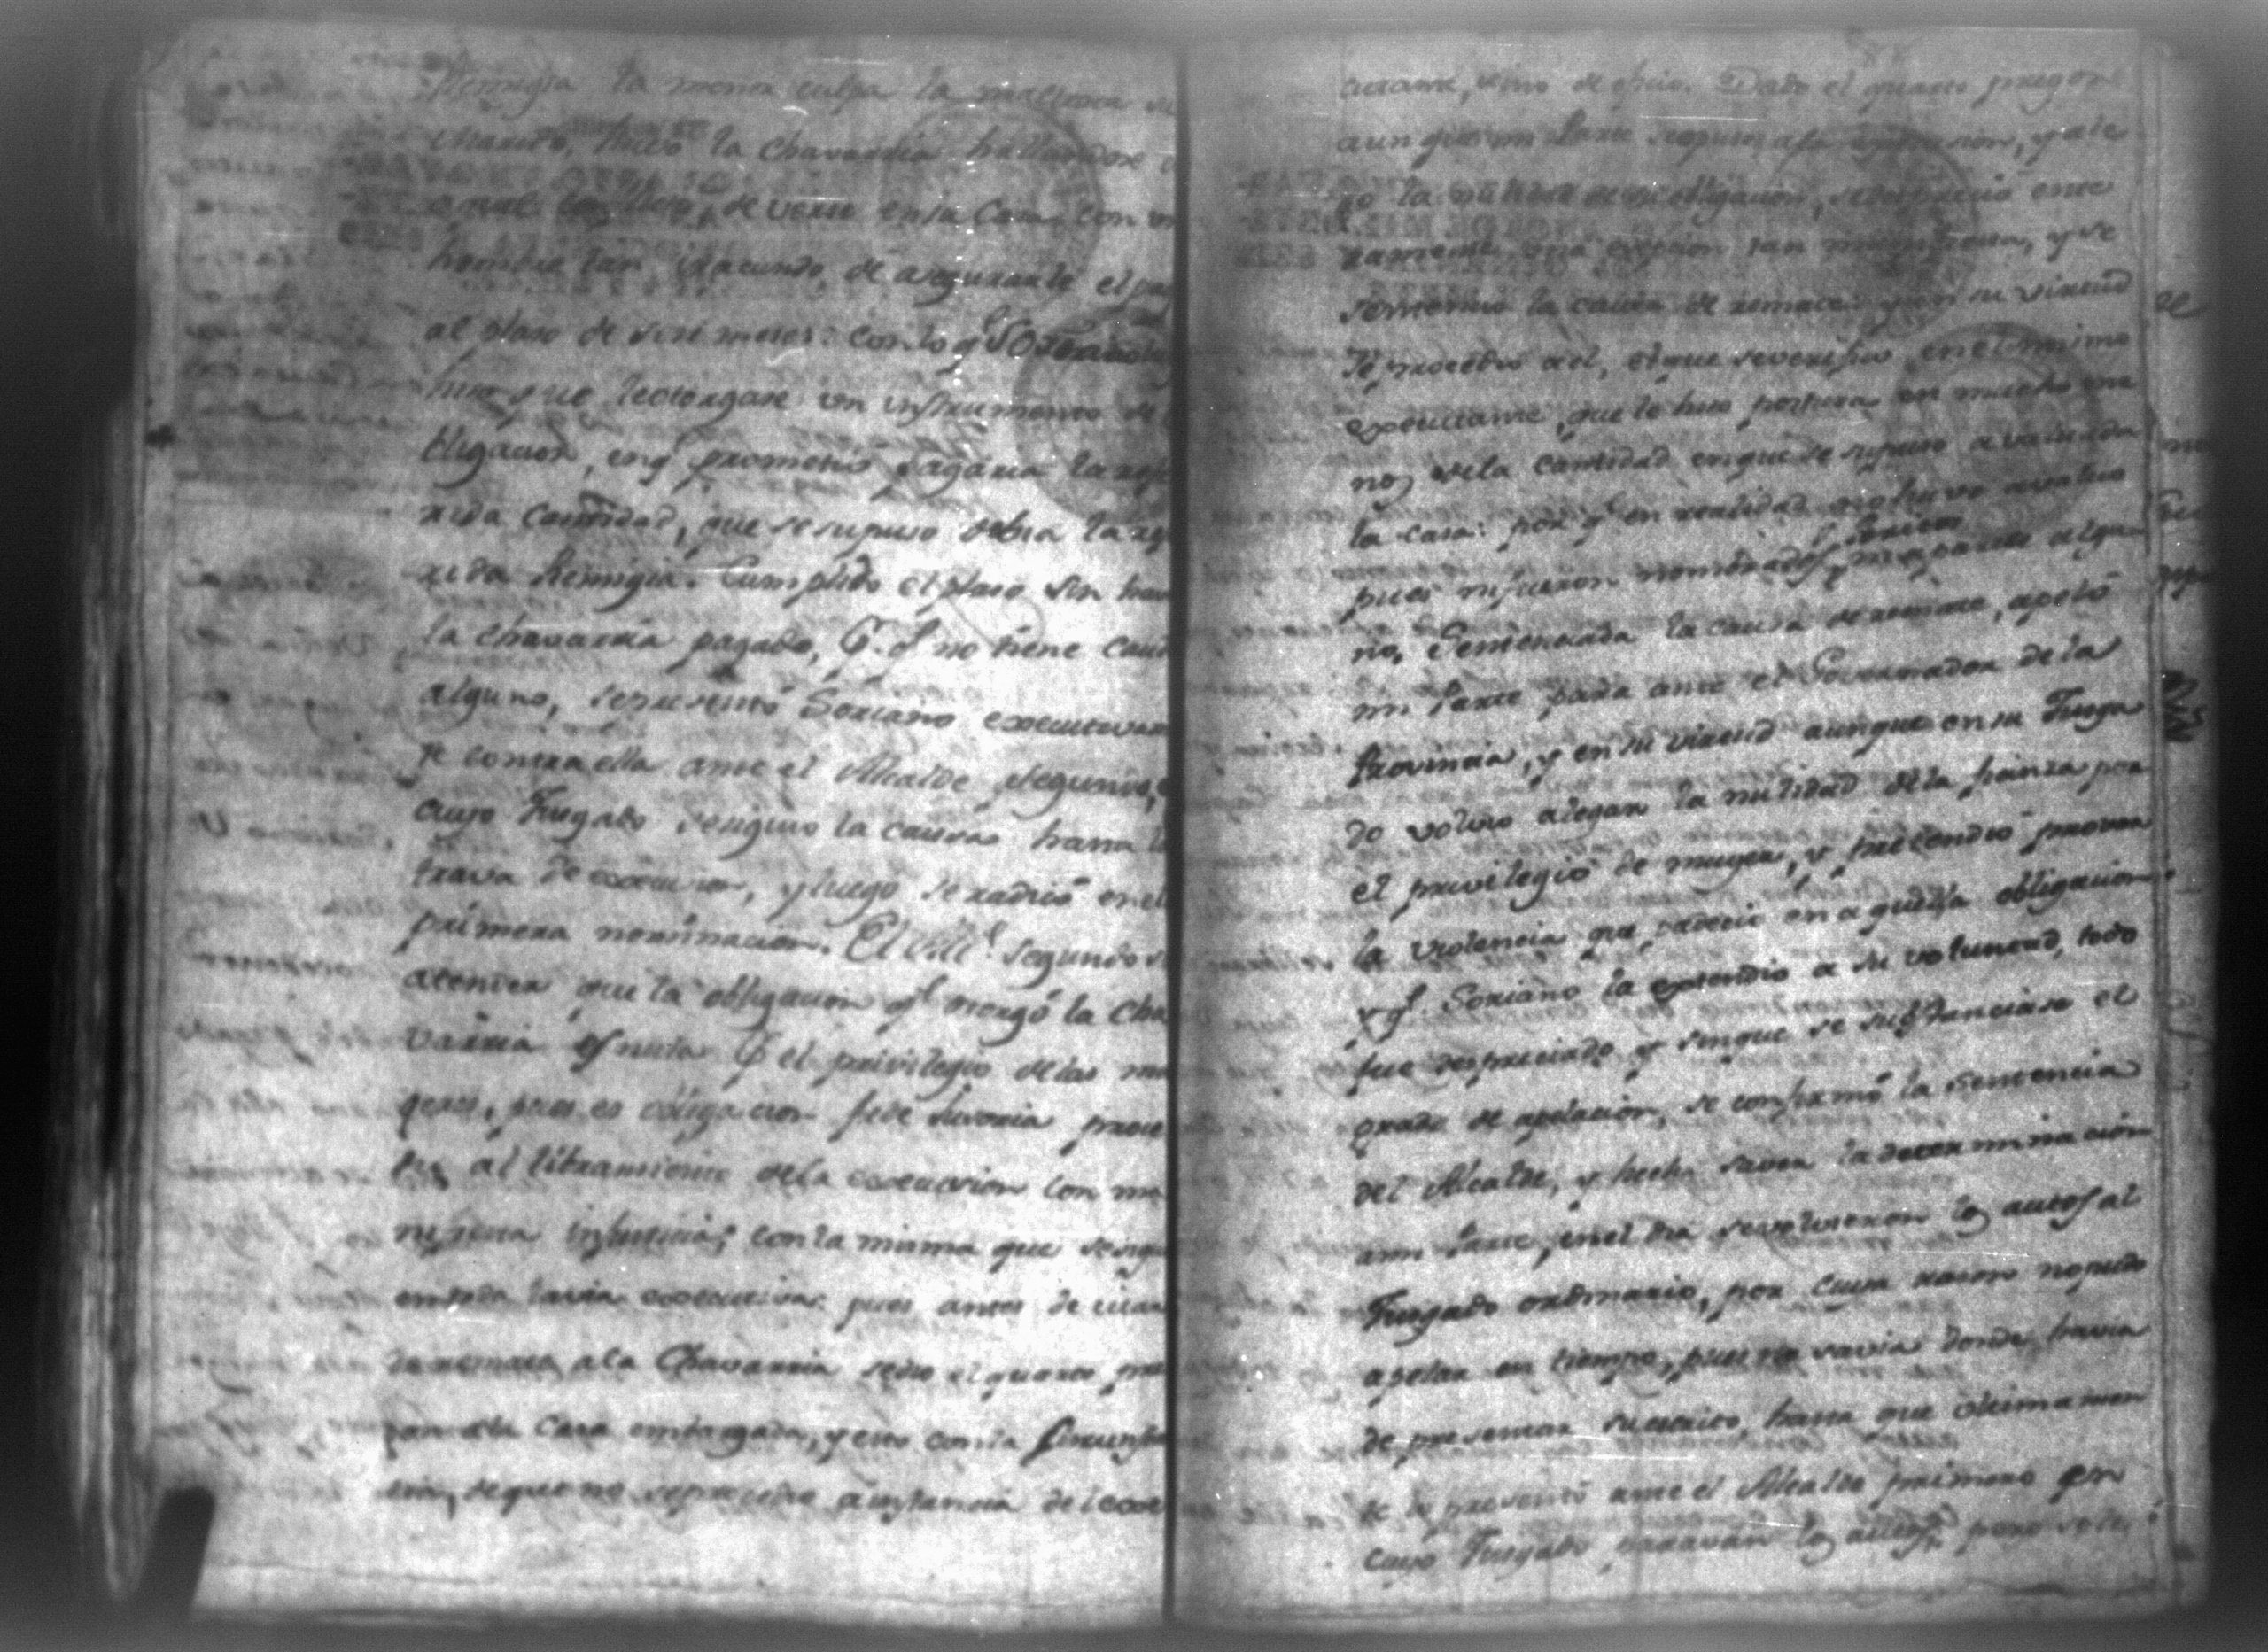 Remigia la menor culpa la maltrata su
marido, hubo la Chavarria hallandose
de verse en su Casa con un
hombre tan iracundo, de asegurarle el pag
al plaso de seis meses: con lo q.e Soriano
hizo que le otorgase un instrumento de
bligacion, en q.e prometio pagaria la refe
rida cantidad, que se supuso debia la refe
rida Remigia. Cumplido el plaso sin hav
la Chavarria pagado, P. q.e no tiene cau
alguno, se presentó Soriano executivam
te contra ella ante el Alcalde Segundo,
cuyo Jusgado se siguio la causa hasta la
trava de execucion, y luego se radicó en el
primera nominacion. El Alc.e segundo si
atender que la obligacion q.e otorgó la Cha
varria es nula P. el privilegio de las mu
geres, pues es obligacion fide iusoria proce
dio al libramiento de la execucion con ma
nifiesta injusticia; con la misma que se sigu
en toda la via executiva pues antes de citar
de remate a la Chavarria se dio el quarto pre
gon a la Casa embargada, y esto con la circunstan
cia, de que no se procedio a instancia del exe
cutante, sino de oficio. Dado el quarto pregon
aunque mi Parte se opuso a la execucion, y ale
gó la nulidad de su obligacion, se desprecio ente
ramente una excepcion tan manifiesta, y se
sentencio la causa de remate: y en su virtud
se procedio a el, el que se verifico en el mismo
executante, que le hizo postura en mucho me
nos de la cantidad en que se supuso avaluada
la casa: por q.e en realidad no huvo avaluo
pues ni fueron nombrados p.r Soriano, ni p.r mi parte algu
no. Sentenciada la causa de remate, apeló
mi Parte para ante el Governador de la
Provincia, y en su virtud aunque en su Jusga
do volvio alegar la nulidad de la fianza por
el privilegio de muger, y pretendio provar
la violencia que padecio en aquella obligacion
y q.e Soriano la extendio a su voluntad, todo
fue despreciado y sin que se substanciase el
grado de apelacion, se confirmó la Sentencia
del Alcalde, y hecha saver la determinacion
a mi Parte, en el dia se volvieron los autos al
Jusgado ordinario, por cuya razon no pudo
apelar en tiempo, pues no savia donde havia
de presentar su escrito, hasta que ultimamen
te lo presentó ante el Alcalde primero en
cuyo Jusgado paravan los autos, pero se le